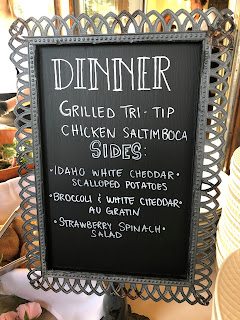 DINNER
GRILLED TRI-TIP
CHICKEN SALTIMBOCA
SIDES:
• IDAHO WHITE CHEDDAR •
SCALLOPED POTATOES
• BROCCOLI & WHITE CHEDDAR •
AU GRATIN
• STRAWBERRY SPINACH •
SALAD